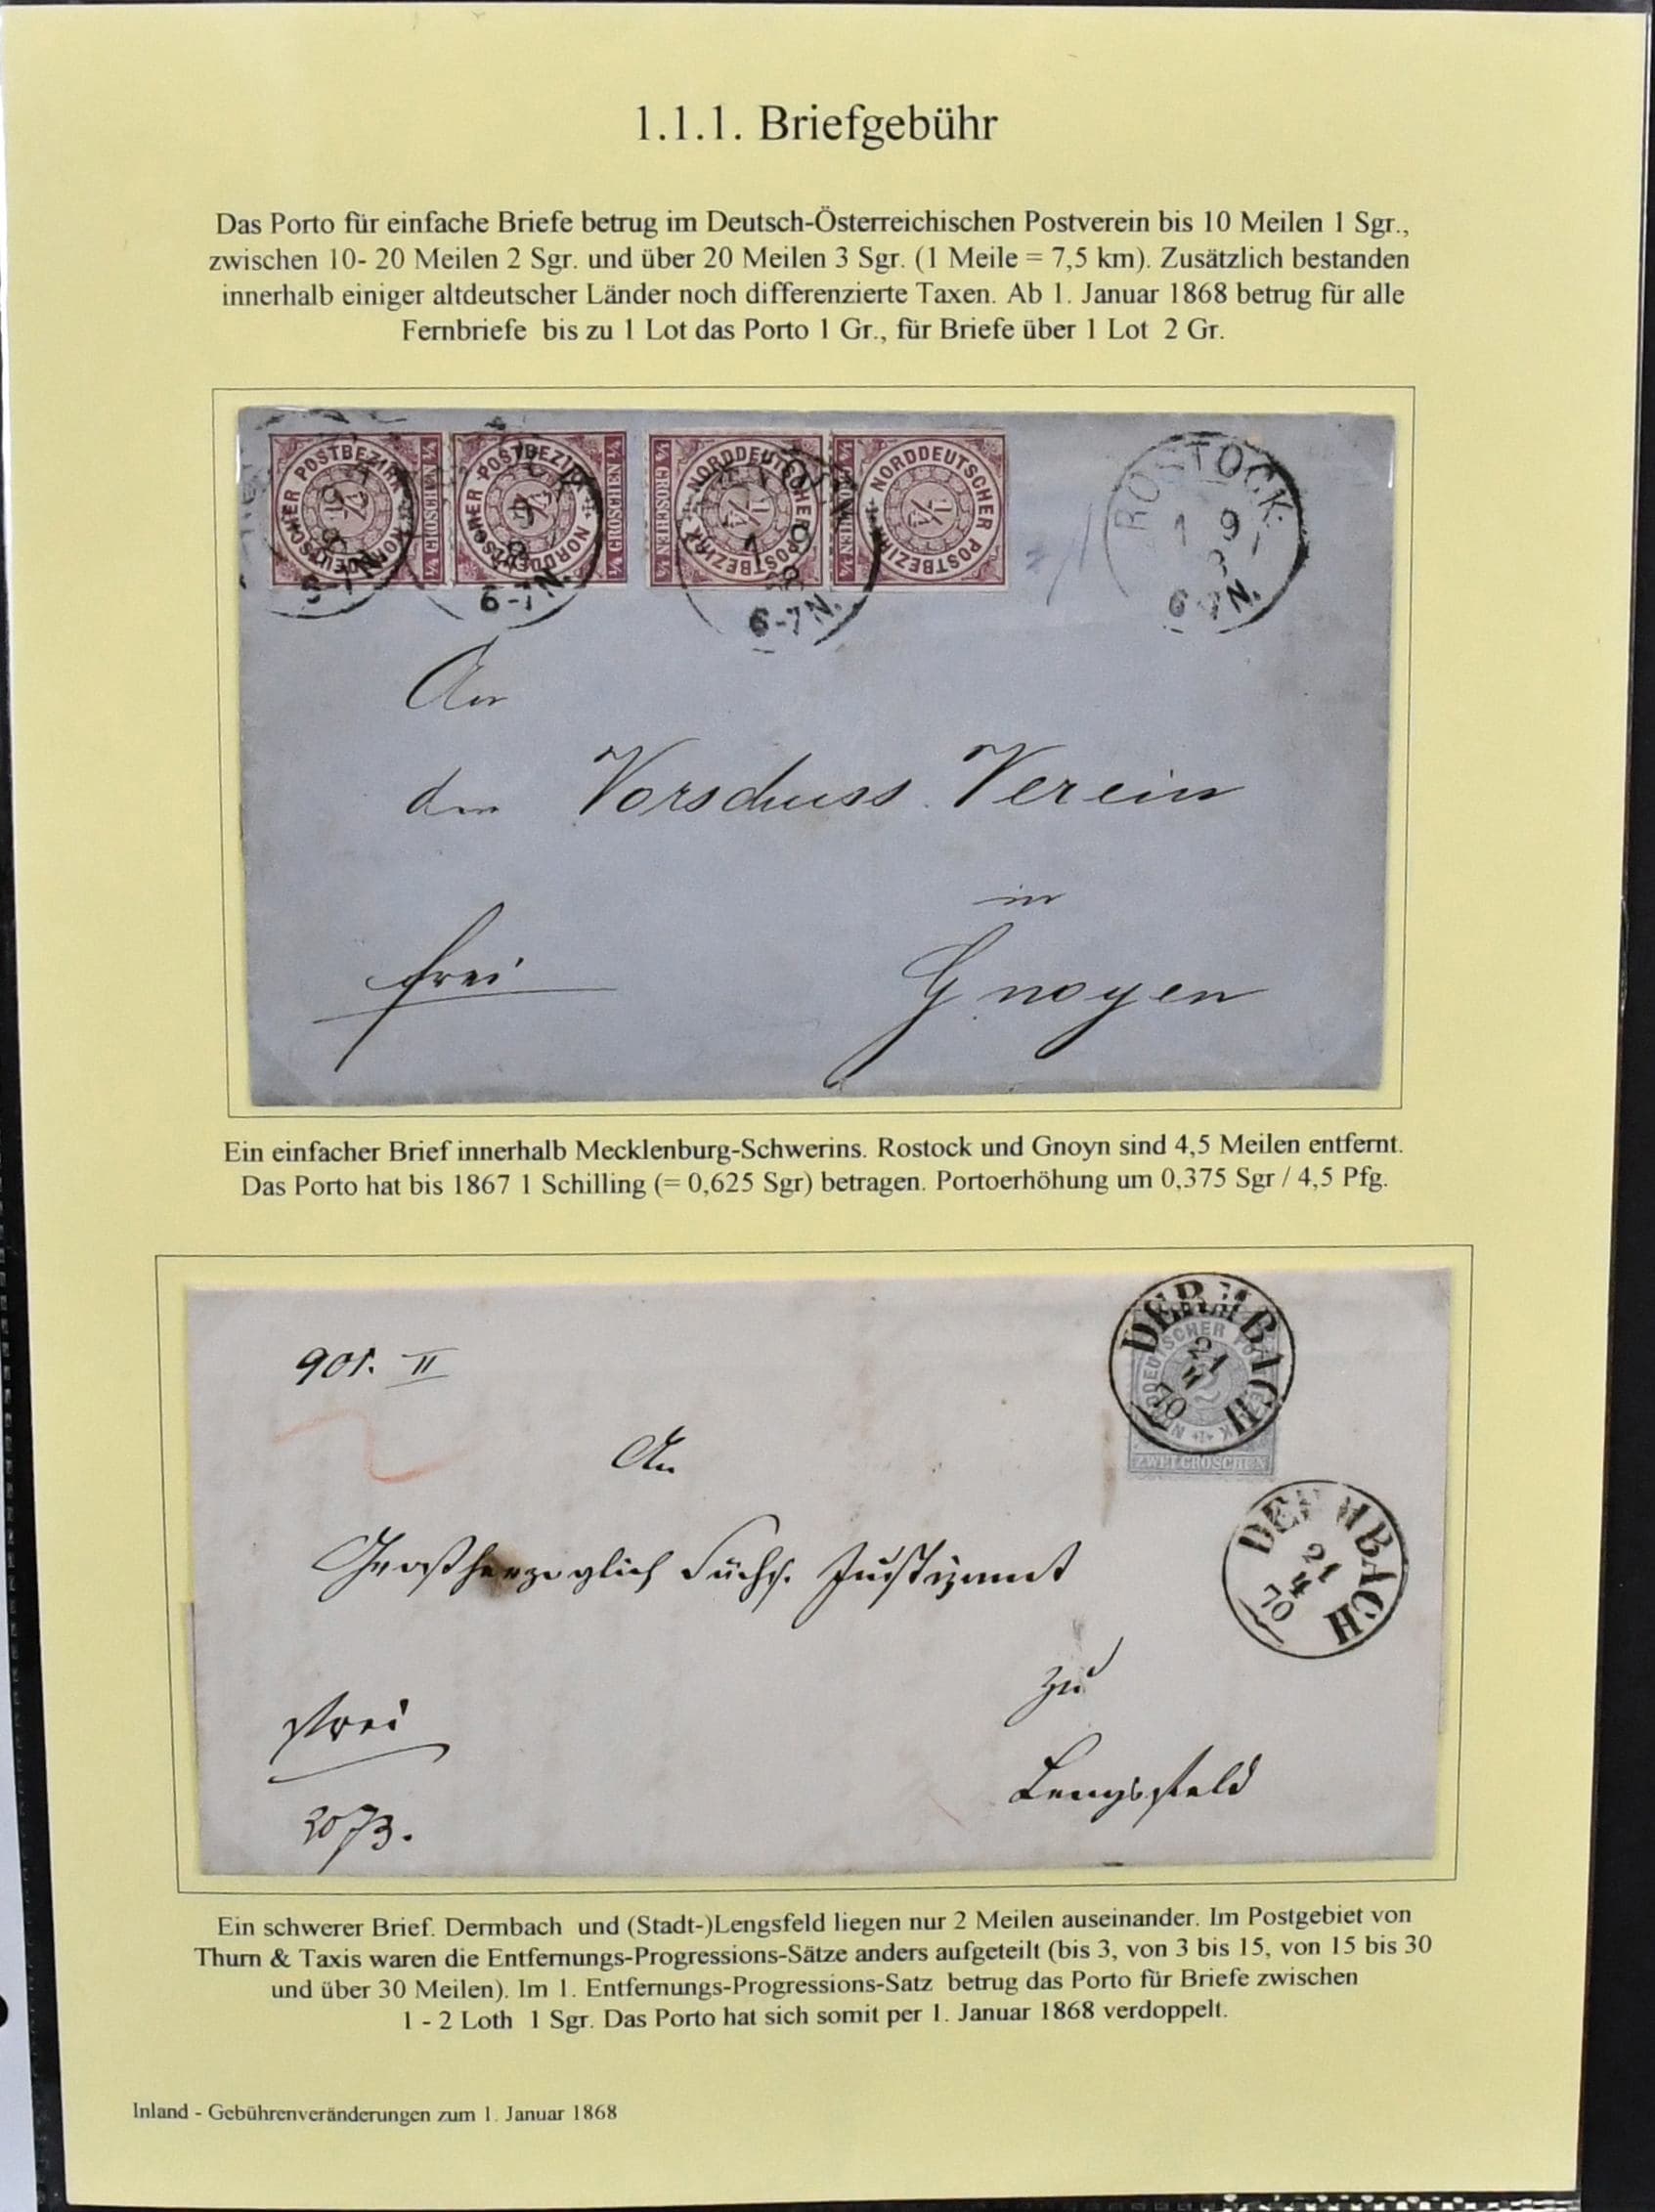 1.1.1. Briefgebühr
Das Porto für einfache Briefe betrug im Deutsch-Österreichischen Postverein bis 10 Meilen 1 Sgr.,
zwischen 10- 20 Meilen 2 Sgr. und über 20 Meilen 3 Sgr. (1 Meile = 7,5 km). Zusätzlich bestanden
innerhalb einiger altdeutscher Länder noch differenzierte Taxen. Ab 1. Januar 1868 betrug für alle
Fernbriefe bis zu 1 Lot das Porto 1 Gr., für Briefe über 1 Lot 2 Gr.
NORDDEUTSCHER POSTBEZIRK ¼ GROSCHEN ¼
NORDDEUTSCHER POSTBEZIRK ¼ GROSCHEN ¼
¼ GROSCHEN ¼ NORDDEUTSCHER POSTBEZIRK
¼ GROSCHEN ¼ NORDDEUTSCHER POSTBEZIRK
ROSTOCK
1 9
6-7N.
An
den Vorschuss Verein
in
frei
Gnoyen
Ein einfacher Brief innerhalb Mecklenburg-Schwerins. Rostock und Gnoyn sind 4,5 Meilen entfernt.
Das Porto hat bis 1867 1 Schilling (= 0,625 Sgr) betragen. Portoerhöhung um 0,375 Sgr / 4,5 Pfg.
DERMBACH
21
4
70
NORDDEUTSCHER POSTBEZIRK
ZWEI GROSCHEN
901. II
An
DERMBACH
21
4
70
Großherzoglich Sächs. Justizamt
zu
frei
Lengsfeld
2073.
Ein schwerer Brief. Dermbach und (Stadt-)Lengsfeld liegen nur 2 Meilen auseinander. Im Postgebiet von
Thurn & Taxis waren die Entfernungs-Progressions-Sätze anders aufgeteilt (bis 3, von 3 bis 15, von 15 bis 30
und über 30 Meilen). Im 1. Entfernungs-Progressions-Satz betrug das Porto für Briefe zwischen
1 - 2 Loth 1 Sgr. Das Porto hat sich somit per 1. Januar 1868 verdoppelt.
Inland - Gebührenveränderungen zum 1. Januar 1868